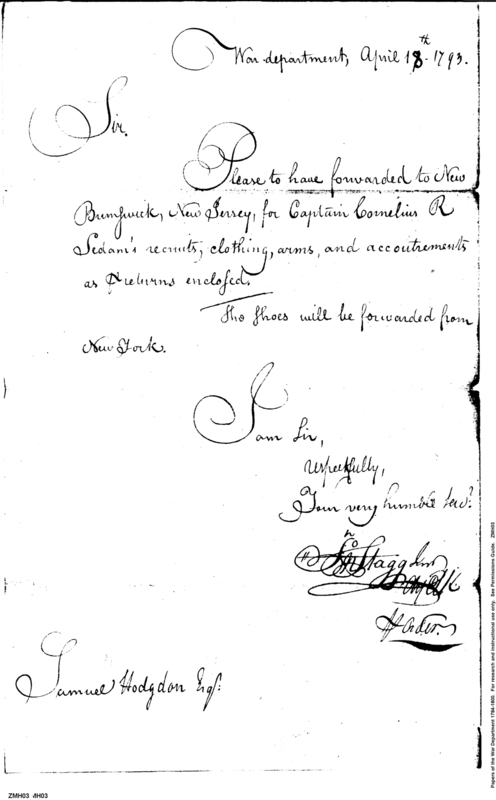 War department, April 18th 1793.
Sir.
Please to have forwarded to New
Brunswick, New Jersey, for Captain Cornelius R
Sedam's recruits, clothing, arms, and accoutrements
as ⅌ returns enclosed.
The Shoes will be forwarded from
New York.
I am Sir,
respectfully,
Your very humble Serv.t
Jno Stagg Junr
Chf Clk
Samuel Hodgdon Esqr.
Papers of the War Department 1784-1800. For research and instructional use only. See Permissions Guide. ZMH03
ZMH03 -MH03